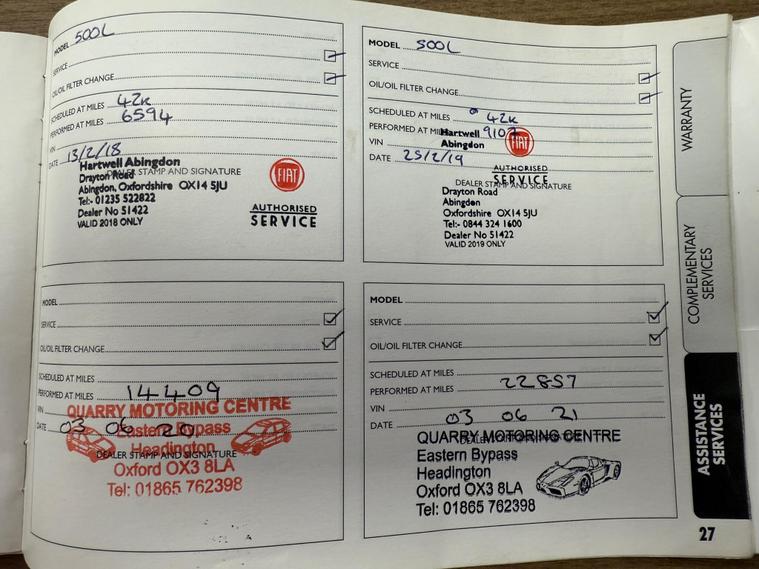 MODEL 500L
SERVICE
OIL/OIL FILTER CHANGE
SCHEDULED AT MILES 42K
PERFORMED AT MILES 6594
VIN
DATE 13/2/18
DEALER STAMP AND SIGNATURE
Hartwell Abingdon
Drayton Road
Abingdon, Oxfordshire OX14 5JU
Tel:- 01235 522822
Dealer No 51422
VALID 2018 ONLY
FIAT
AUTHORISED
SERVICE
MODEL 500L
SERVICE
OIL/OIL FILTER CHANGE
SCHEDULED AT MILES 42K
PERFORMED AT MILES 9107
VIN
DATE 25/2/19
Hartwell
Abingdon
FIAT
AUTHORISED
SERVICE
DEALER STAMP AND SIGNATURE
Drayton Road
Abingdon
Oxfordshire OX14 5JU
Tel:- 0844 324 1600
Dealer No 51422
VALID 2019 ONLY
MODEL
SERVICE
OIL/OIL FILTER CHANGE
SCHEDULED AT MILES
PERFORMED AT MILES 14409
VIN
DATE 03 06 20
DEALER STAMP AND SIGNATURE
QUARRY MOTORING CENTRE
Eastern Bypass
Headington
Oxford OX3 8LA
Tel: 01865 762398
MODEL
SERVICE
OIL/OIL FILTER CHANGE
SCHEDULED AT MILES
PERFORMED AT MILES 22857
VIN
DATE 03 06 21
QUARRY MOTORING CENTRE
Eastern Bypass
Headington
Oxford OX3 8LA
Tel: 01865 762398
WARRANTY
COMPLEMENTARY
SERVICES
ASSISTANCE
SERVICES
27